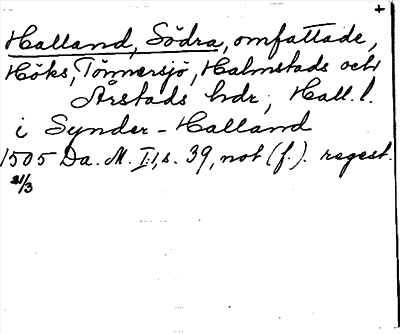 +
Halland, Södra, omfattade,
Höks, Tönnersjö, Halmstads och
Årstads hdr; Hall. l.
i Synder-Halland
1505 Da. M. I:1, s. 39, not (f.). regest.
21/3